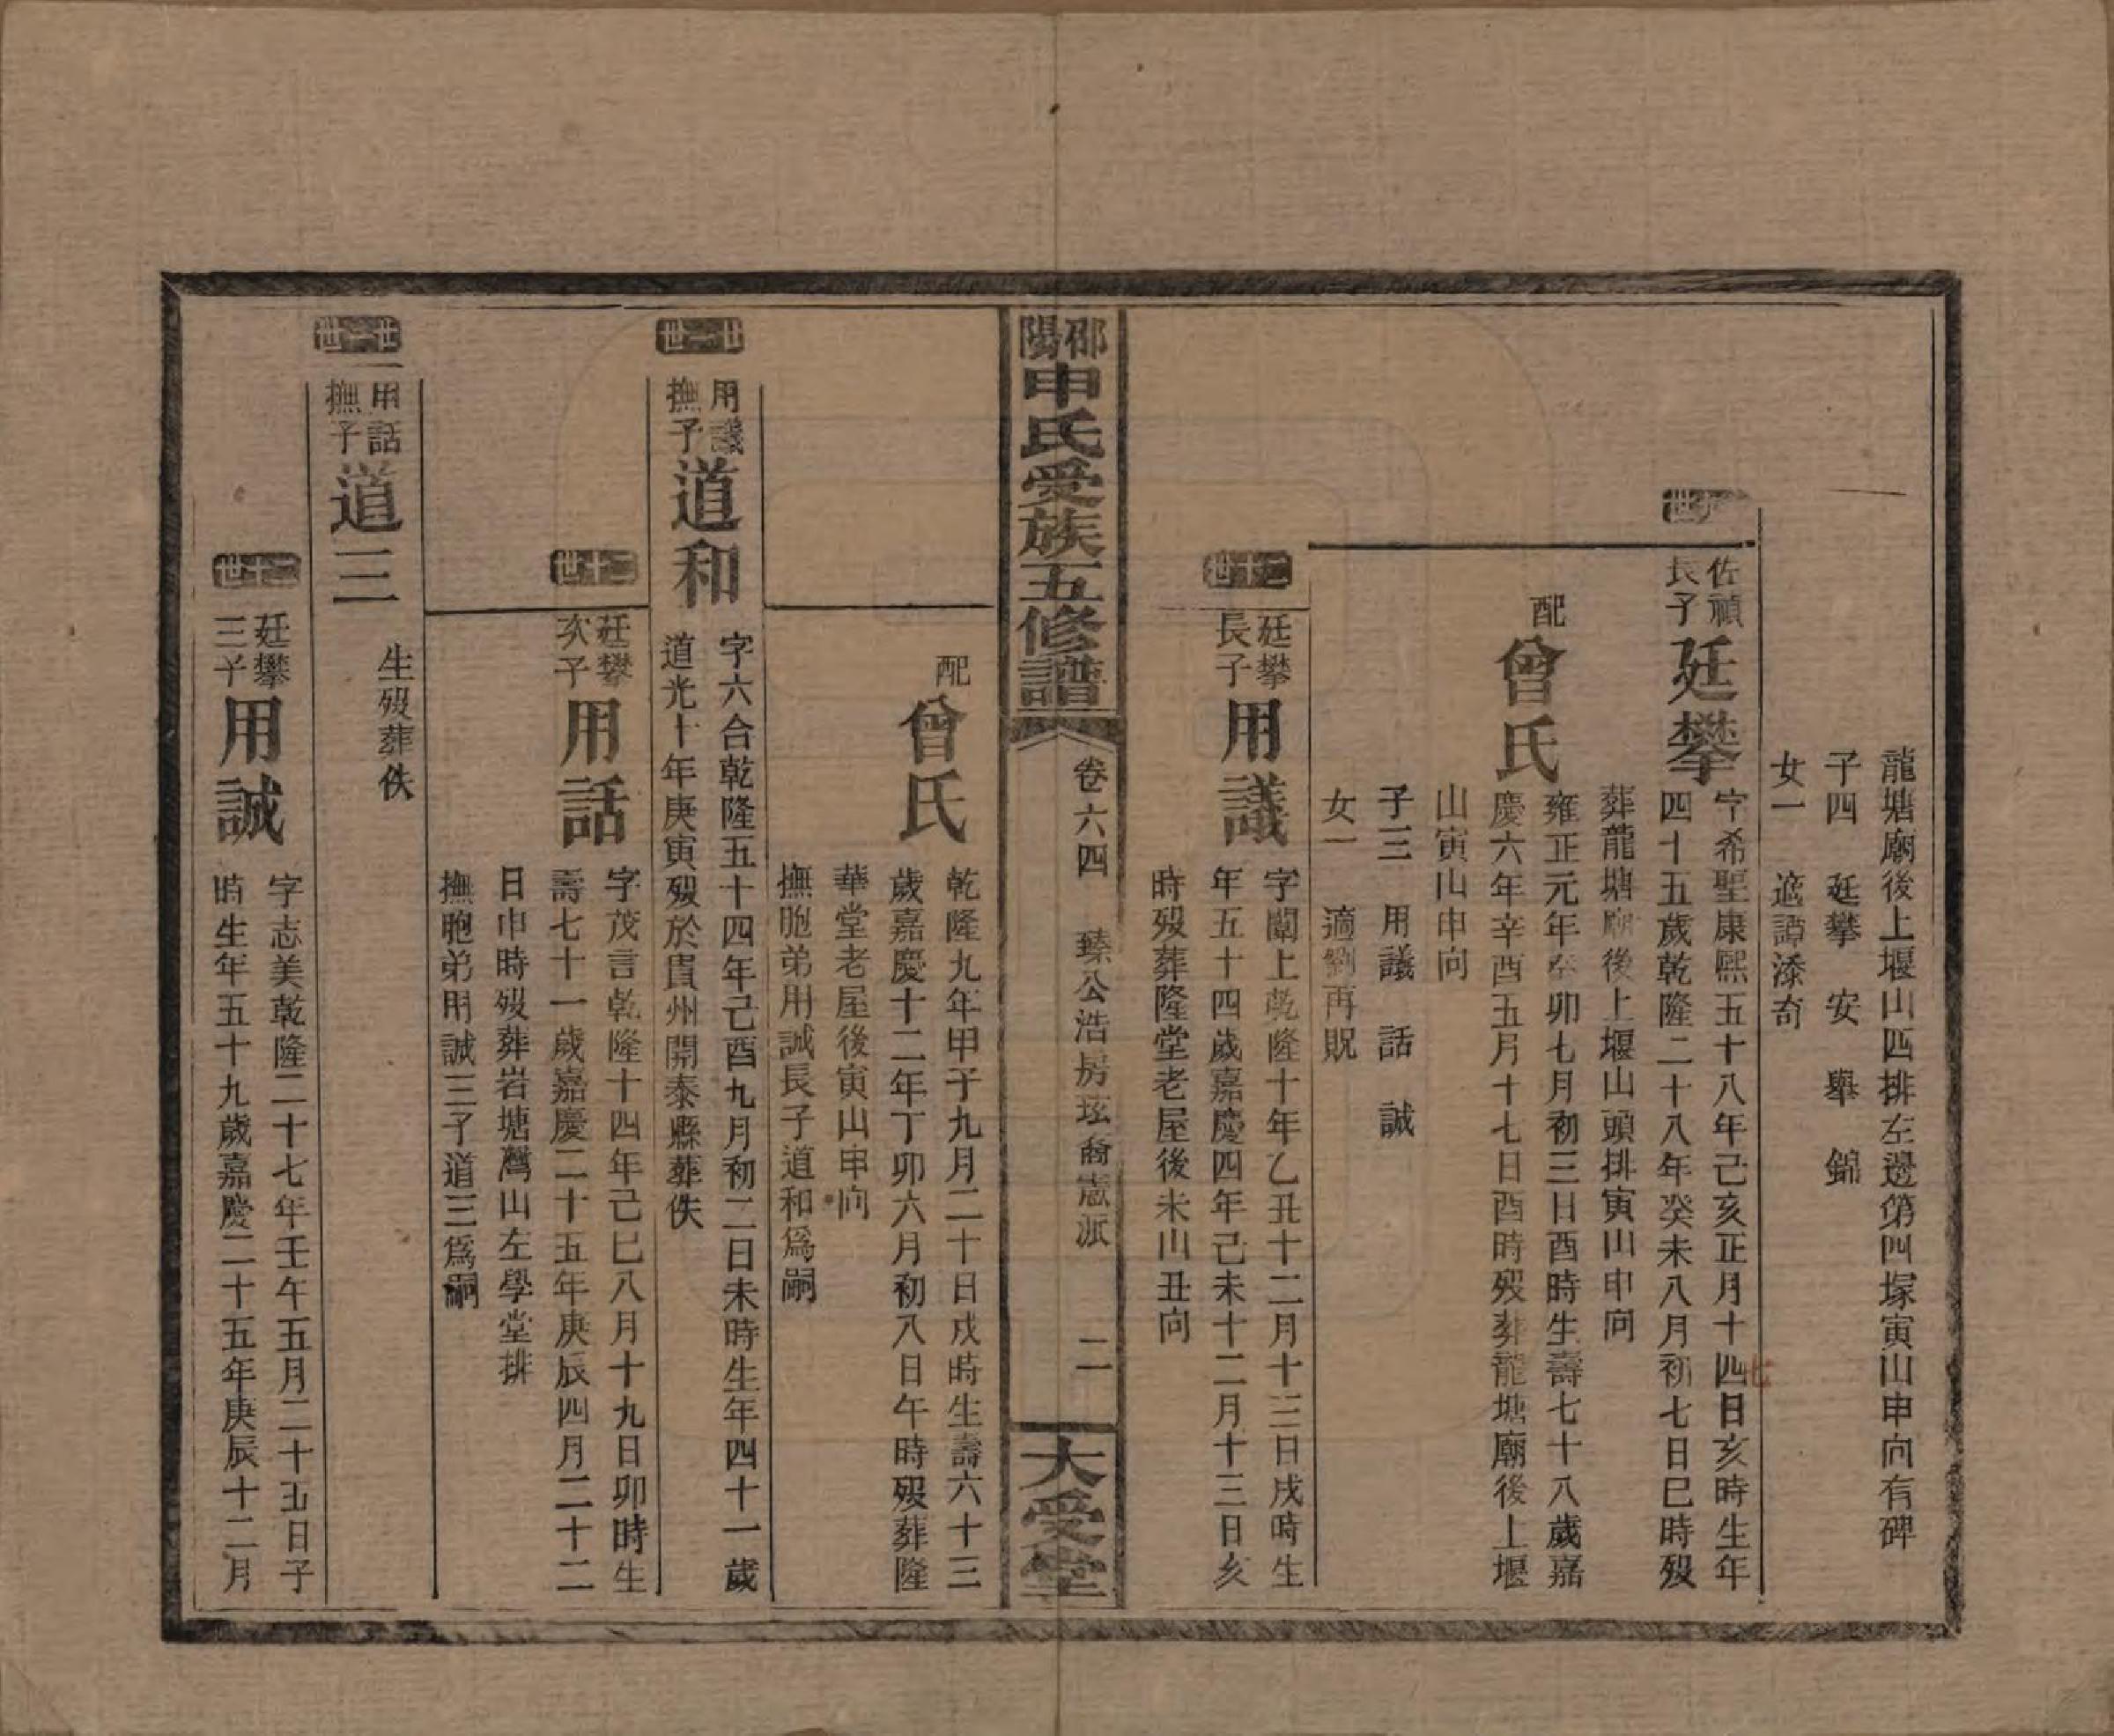 龍塘廟後上堰山四排左邊第四塚寅山申向有碑
子四　廷攀　安　舉　錦
女一　適譚添奇
十九世
佐禎長子
廷攀
字希聖康熙五十八年己亥正月十四日亥時生年
七
四十五歲乾隆二十八年癸未八月初七日巳時歿
葬龍塘廟後上堰山頭排寅山申向
配
曾氏
雍正元年癸卯七月初三日酉時生壽七十八歲嘉
慶六年辛酉五月十七日酉時歿葬龍塘廟後上堰
山寅山申向
子三　用議　話　誠
女一　適劉再貺
二十世
廷攀長子
用議
字闡上乾隆十年乙丑十二月十三日戌時生
年五十四歲嘉慶四年己未十二月十三日亥
時歿葬隆堂老屋後未山丑向
邵陽申氏受族五修譜
卷六四　臻公浩房玹裔憲派　二
大受堂
配
曾氏
乾隆九年甲子九月二十日戌時生壽六十三
歲嘉慶十二年丁卯六月初八日午時歿葬隆
華堂老屋後寅山申向
撫胞弟用誠長子道和爲嗣
廿一世
用議撫子
道和
字六合乾隆五十四年己酉九月初二日未時生年四十一歲
道光十年庚寅歿於貴州開泰縣葬佚
二十世
廷攀次子
用話
字茂言乾隆十四年己巳八月十九日卯時生
壽七十一歲嘉慶二十五年庚辰四月二十二
日申時歿葬岩塘灣山左學堂排
撫胞弟用誠三子道三爲嗣
廿一世
用話撫子
道三
生歿葬佚
二十世
廷攀三子
用誠
字志美乾隆二十七年壬午五月二十五日子
時生年五十九歲嘉慶二十五年庚辰十二月